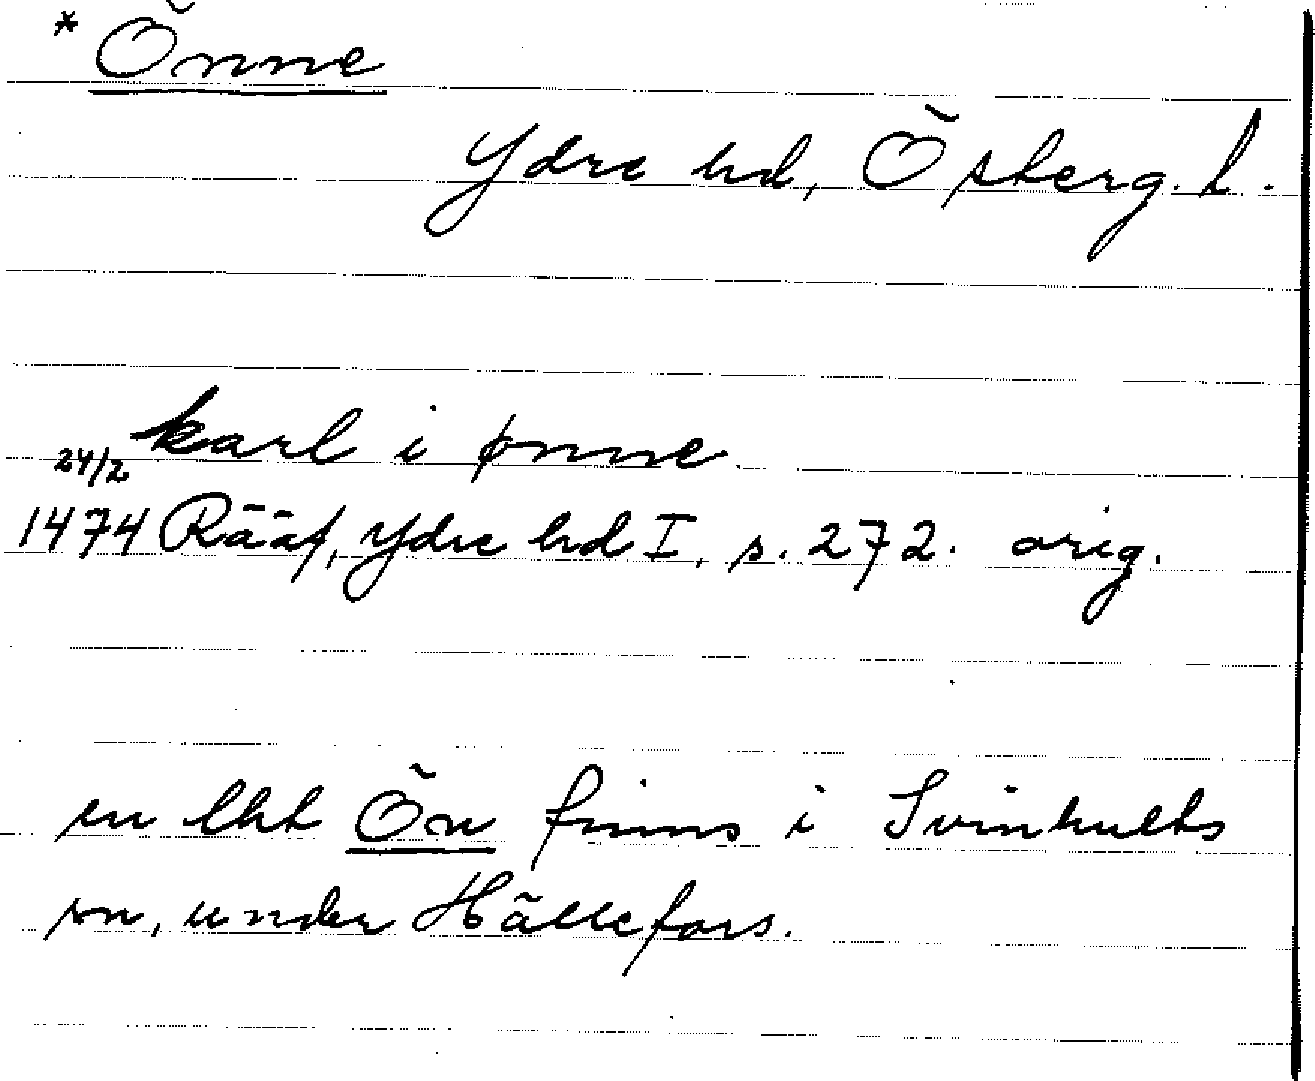 * Önne
Ydre hd, Österg. l.
karl i ønne
24/2
1474 Rääf, Ydre hd I, s. 272. orig.
en lht Ön finns i Svinhults
sn, under Hällefors.